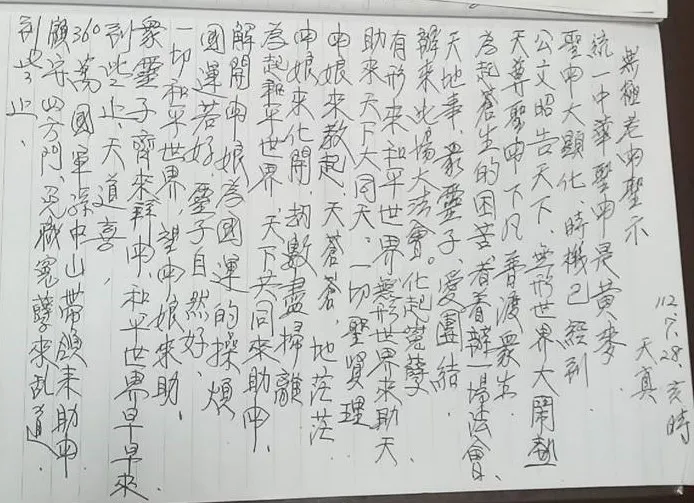 無極老母聖示
112.7.28.亥時
天真
統一中華聖母是黃麥
聖母大顯化、時機已經到
公文昭告天下、無形世界大鬧熱
天尊聖母下凡普渡眾生
為起蒼生的困苦、着看辦一場法會、
天地事、眾靈子、愛團結
辦來此場大法會。化起冤孽
有形來和平世界、無形世界來助天、
助來天下大同天、一切聖賢理
母娘來教起、天蒼蒼、地茫茫
母娘來化開、劫數盡掃離
為起和平世界、天下共同來助母、
解開母娘為國運的操煩
國運若好、靈子自然好、
一切和平世界、望母娘來助、
眾靈子齊來拜母、和平世界早早來
到此止、天道喜、
360萬國軍孫中山帶領來助母
顧守四方門、冤孽來亂道、
到此止、